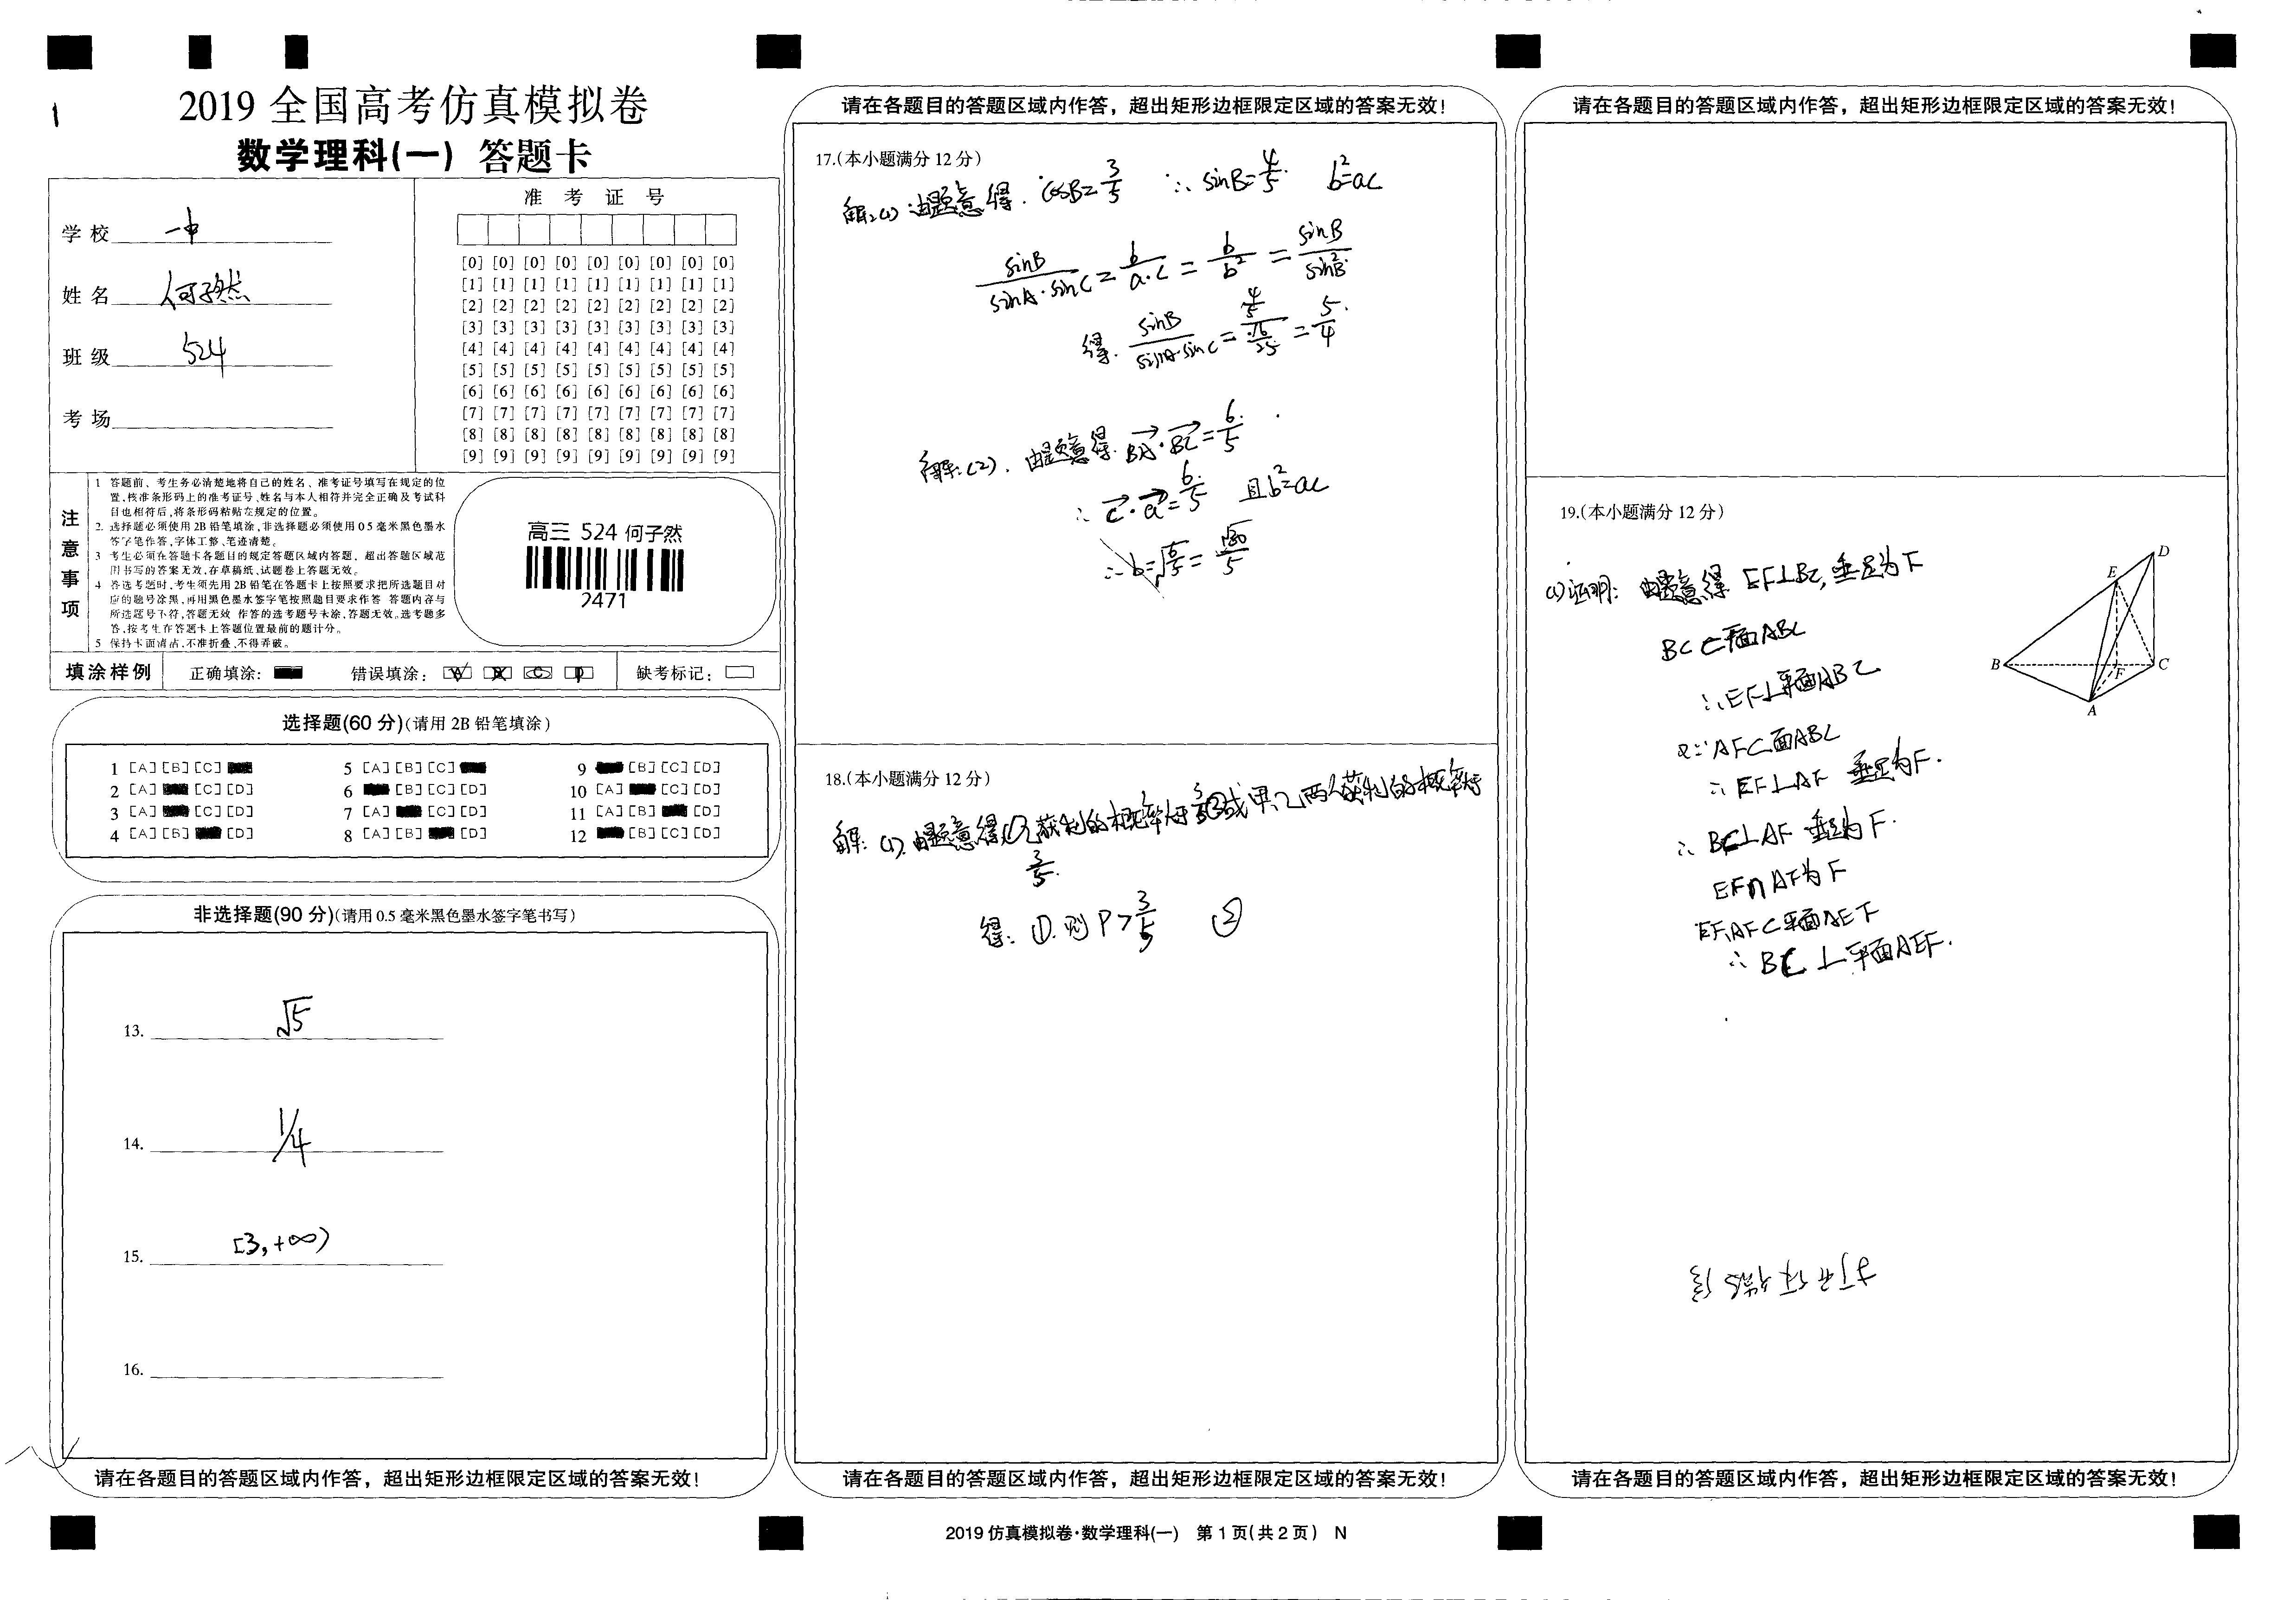 2019 全国高考仿真模拟卷
数学理科(一) 答题卡
1
学校 一中
姓名 何子然
班级 524
考场
准考证号
[0] [0] [0] [0] [0] [0] [0] [0] [0]
[1] [1] [1] [1] [1] [1] [1] [1] [1]
[2] [2] [2] [2] [2] [2] [2] [2] [2]
[3] [3] [3] [3] [3] [3] [3] [3] [3]
[4] [4] [4] [4] [4] [4] [4] [4] [4]
[5] [5] [5] [5] [5] [5] [5] [5] [5]
[6] [6] [6] [6] [6] [6] [6] [6] [6]
[7] [7] [7] [7] [7] [7] [7] [7] [7]
[8] [8] [8] [8] [8] [8] [8] [8] [8]
[9] [9] [9] [9] [9] [9] [9] [9] [9]
注意事项
1 答题前、考生务必清楚地将自己的姓名、准考证号填写在规定的位
置,核准条形码上的准考证号、姓名与本人相符并完全正确及考试科
目也相符后,将条形码粘贴在规定的位置。
2. 选择题必须使用2B铅笔填涂,非选择题必须使用05毫米黑色墨水
签字笔作答,字体工整、笔迹清楚。
3 考生必须在答题卡各题目的规定答题区域内答题, 超出答题区域范
围书写的答案无效,在草稿纸、试题卷上答题无效。
4 答选考题时,考生须先用2B铅笔在答题卡上按照要求把所选题目对
应的题号涂黑,再用黑色墨水签字笔按照题目要求作答 答题内容与
所选题号不符,答题无效 作答的选考题号未涂,答题无效。选考题多
答,按考生在答题卡上答题位置最前的题计分。
5 保持卡面清洁,不准折叠、不得弄破。
高三 524 何子然
2471
填涂样例 正确填涂: 错误填涂: 缺考标记:
选择题(60 分)(请用 2B 铅笔填涂)
1 [A] [B] [C] 5 [A] [B] [C] 9 [B] [C] [D]
2 [A] [C] [D] 6 [B] [C] [D] 10 [A] [C] [D]
3 [A] [C] [D] 7 [A] [C] [D] 11 [A] [B] [D]
4 [A] [B] [D] 8 [A] [B] [D] 12 [B] [C] [D]
非选择题(90 分)(请用 0.5 毫米黑色墨水签字笔书写)
13. √5
14. 1/4
15. [3,+∞)
16.
请在各题目的答题区域内作答，超出矩形边框限定区域的答案无效！
请在各题目的答题区域内作答，超出矩形边框限定区域的答案无效！
17.(本小题满分 12 分)
解:(1) 由题意得. cosB=3/5 ∴ sinB=4/5. b²=ac
sinB/(sinA·sinC)=b/(a·c)=b/b²=sinB/sin²B
得. sinB/(sinA·sinC)=(4/5)/(16/25)=5/4.
解:(2). 由题意得. BA→·BC→=6/5.
∴ c→·a→=6/5 且b²=ac
∴ b=√(6/5)=√30/5
18.(本小题满分 12 分)
解: (1). 由题意得 获利的概率大于3/5 ②或甲、乙两人获利的概率
3/5.
得: ①. 则 P>3/5 ②
请在各题目的答题区域内作答，超出矩形边框限定区域的答案无效！
请在各题目的答题区域内作答，超出矩形边框限定区域的答案无效！
19.(本小题满分 12 分)
(1)证明: 由题意得 EF⊥BC, 垂足为F
BC⊂平面ABC
∴EF⊥平面ABC
又∵AF⊂面ABC
∴ EF⊥AF 垂足为F.
∴ BC⊥AF 垂足为F.
EF∩AF为F
EF,AF⊂平面AEF
∴ BC⊥平面AEF.
D
E
B
C
F
A
请在各题目的答题区域内作答，超出矩形边框限定区域的答案无效！
2019 仿真模拟卷·数学理科(一) 第 1 页(共 2 页) N